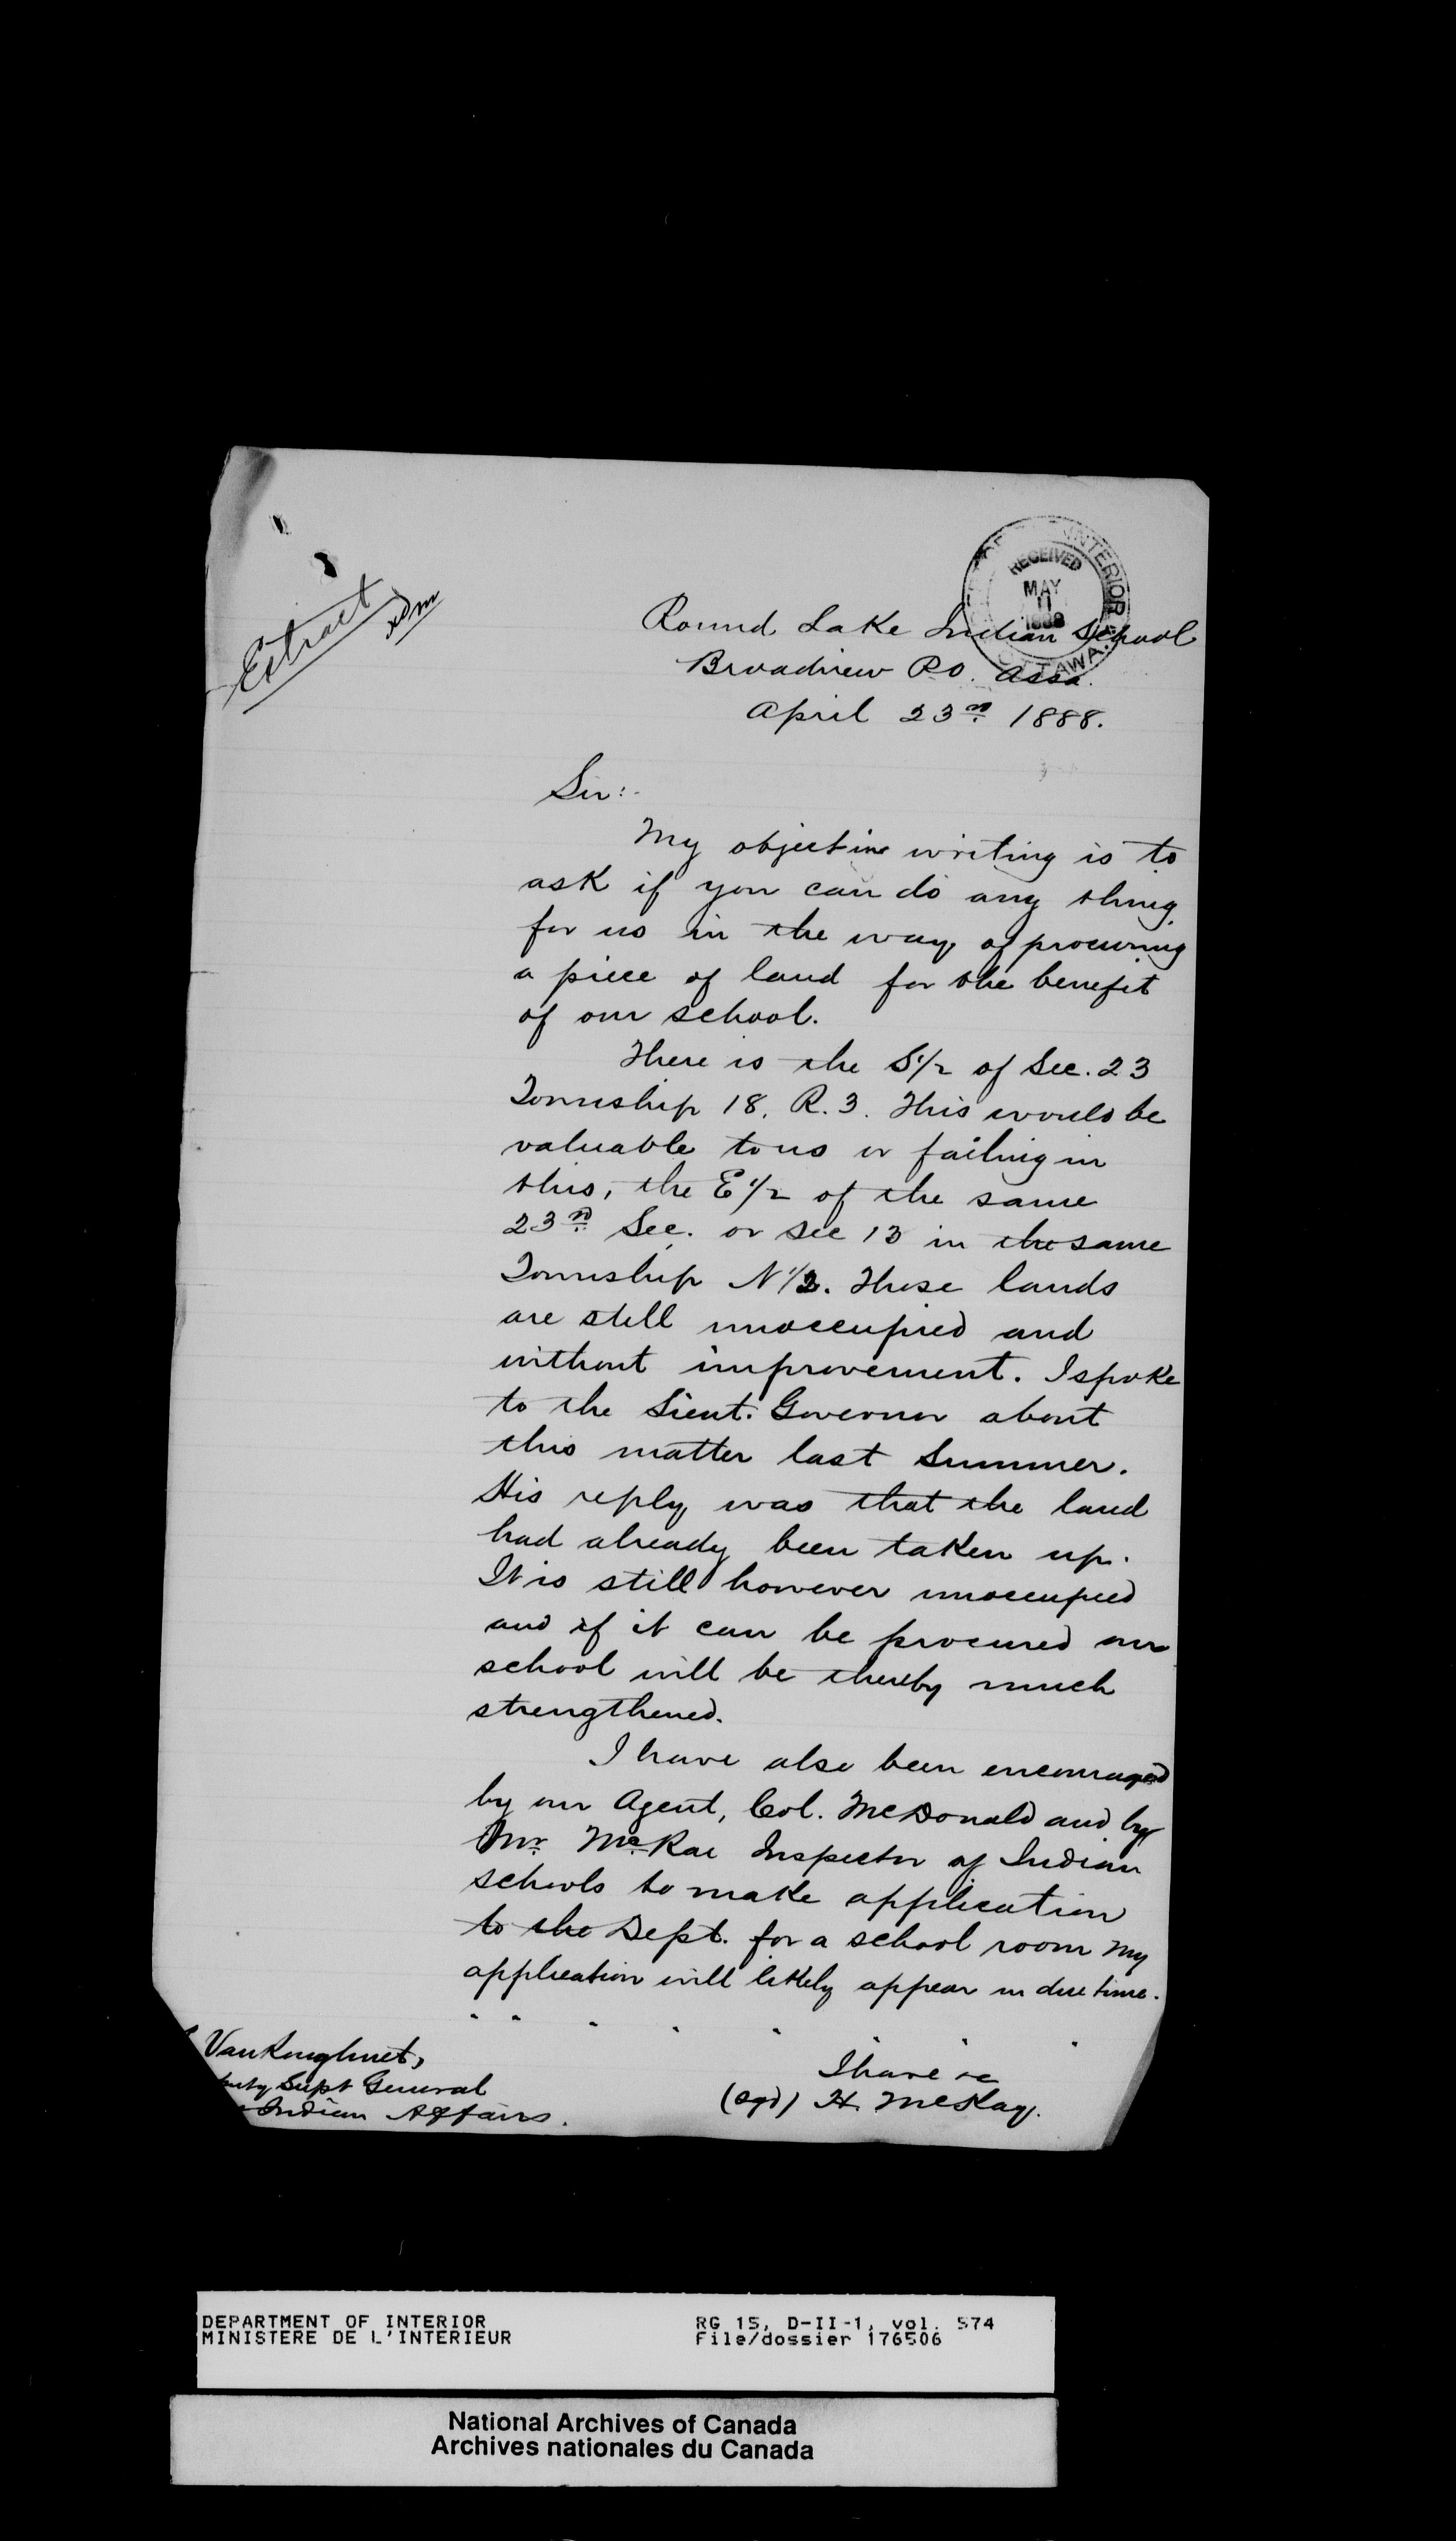 Extract
INTERIOR
RECEIVED
MAY
11
1888
OTTAWA.
Round Lake Indian School
Broadview P.O. Assa.
April 23rd 1888.
Sir:-
My object in writing is to
ask if you can do any thing
for us in the way of procuring
a piece of land for the benefit
of our school.
There is the S 1/2 of Sec. 23
Township 18, R. 3. This would be
valuable to us or failing in
this, the E 1/2 of the same
23rd Sec. or Sec 13 in the same
Township N 1/2. These lands
are still unoccupied and
without improvement. I spoke
to the Lieut. Governor about
this matter last Summer.
His reply was that the land
had already been taken up.
It is still however unoccupied
and if it can be procured our
school will be thereby much
strengthened.
I have also been encouraged
by our Agent, Col. McDonald and by
Mr. McRae Inspector of Indian
schools to make application
to the Dept. for a school room My
application will likely appear in due time.
VanKoughnet,
puty Supt General
Indian Affairs.
I have &c
(sgd) H. McKay.
DEPARTMENT OF INTERIOR
MINISTERE DE L'INTERIEUR
RG 15, D-II-1, vol. 574
File/dossier 176506
National Archives of Canada
Archives nationales du Canada